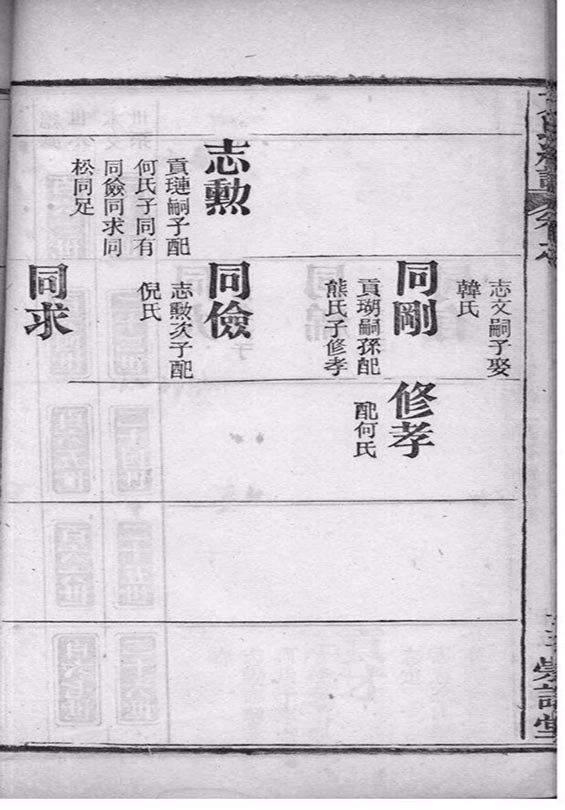 志文嗣子娶
韓氏
同剛
貢瑚嗣孫配
熊氏子修孝
修孝
配何氏
志勲
貢璉嗣子配
何氏子同有
同儉同求同
松同足
同儉
志勲次子配
倪氏
同求